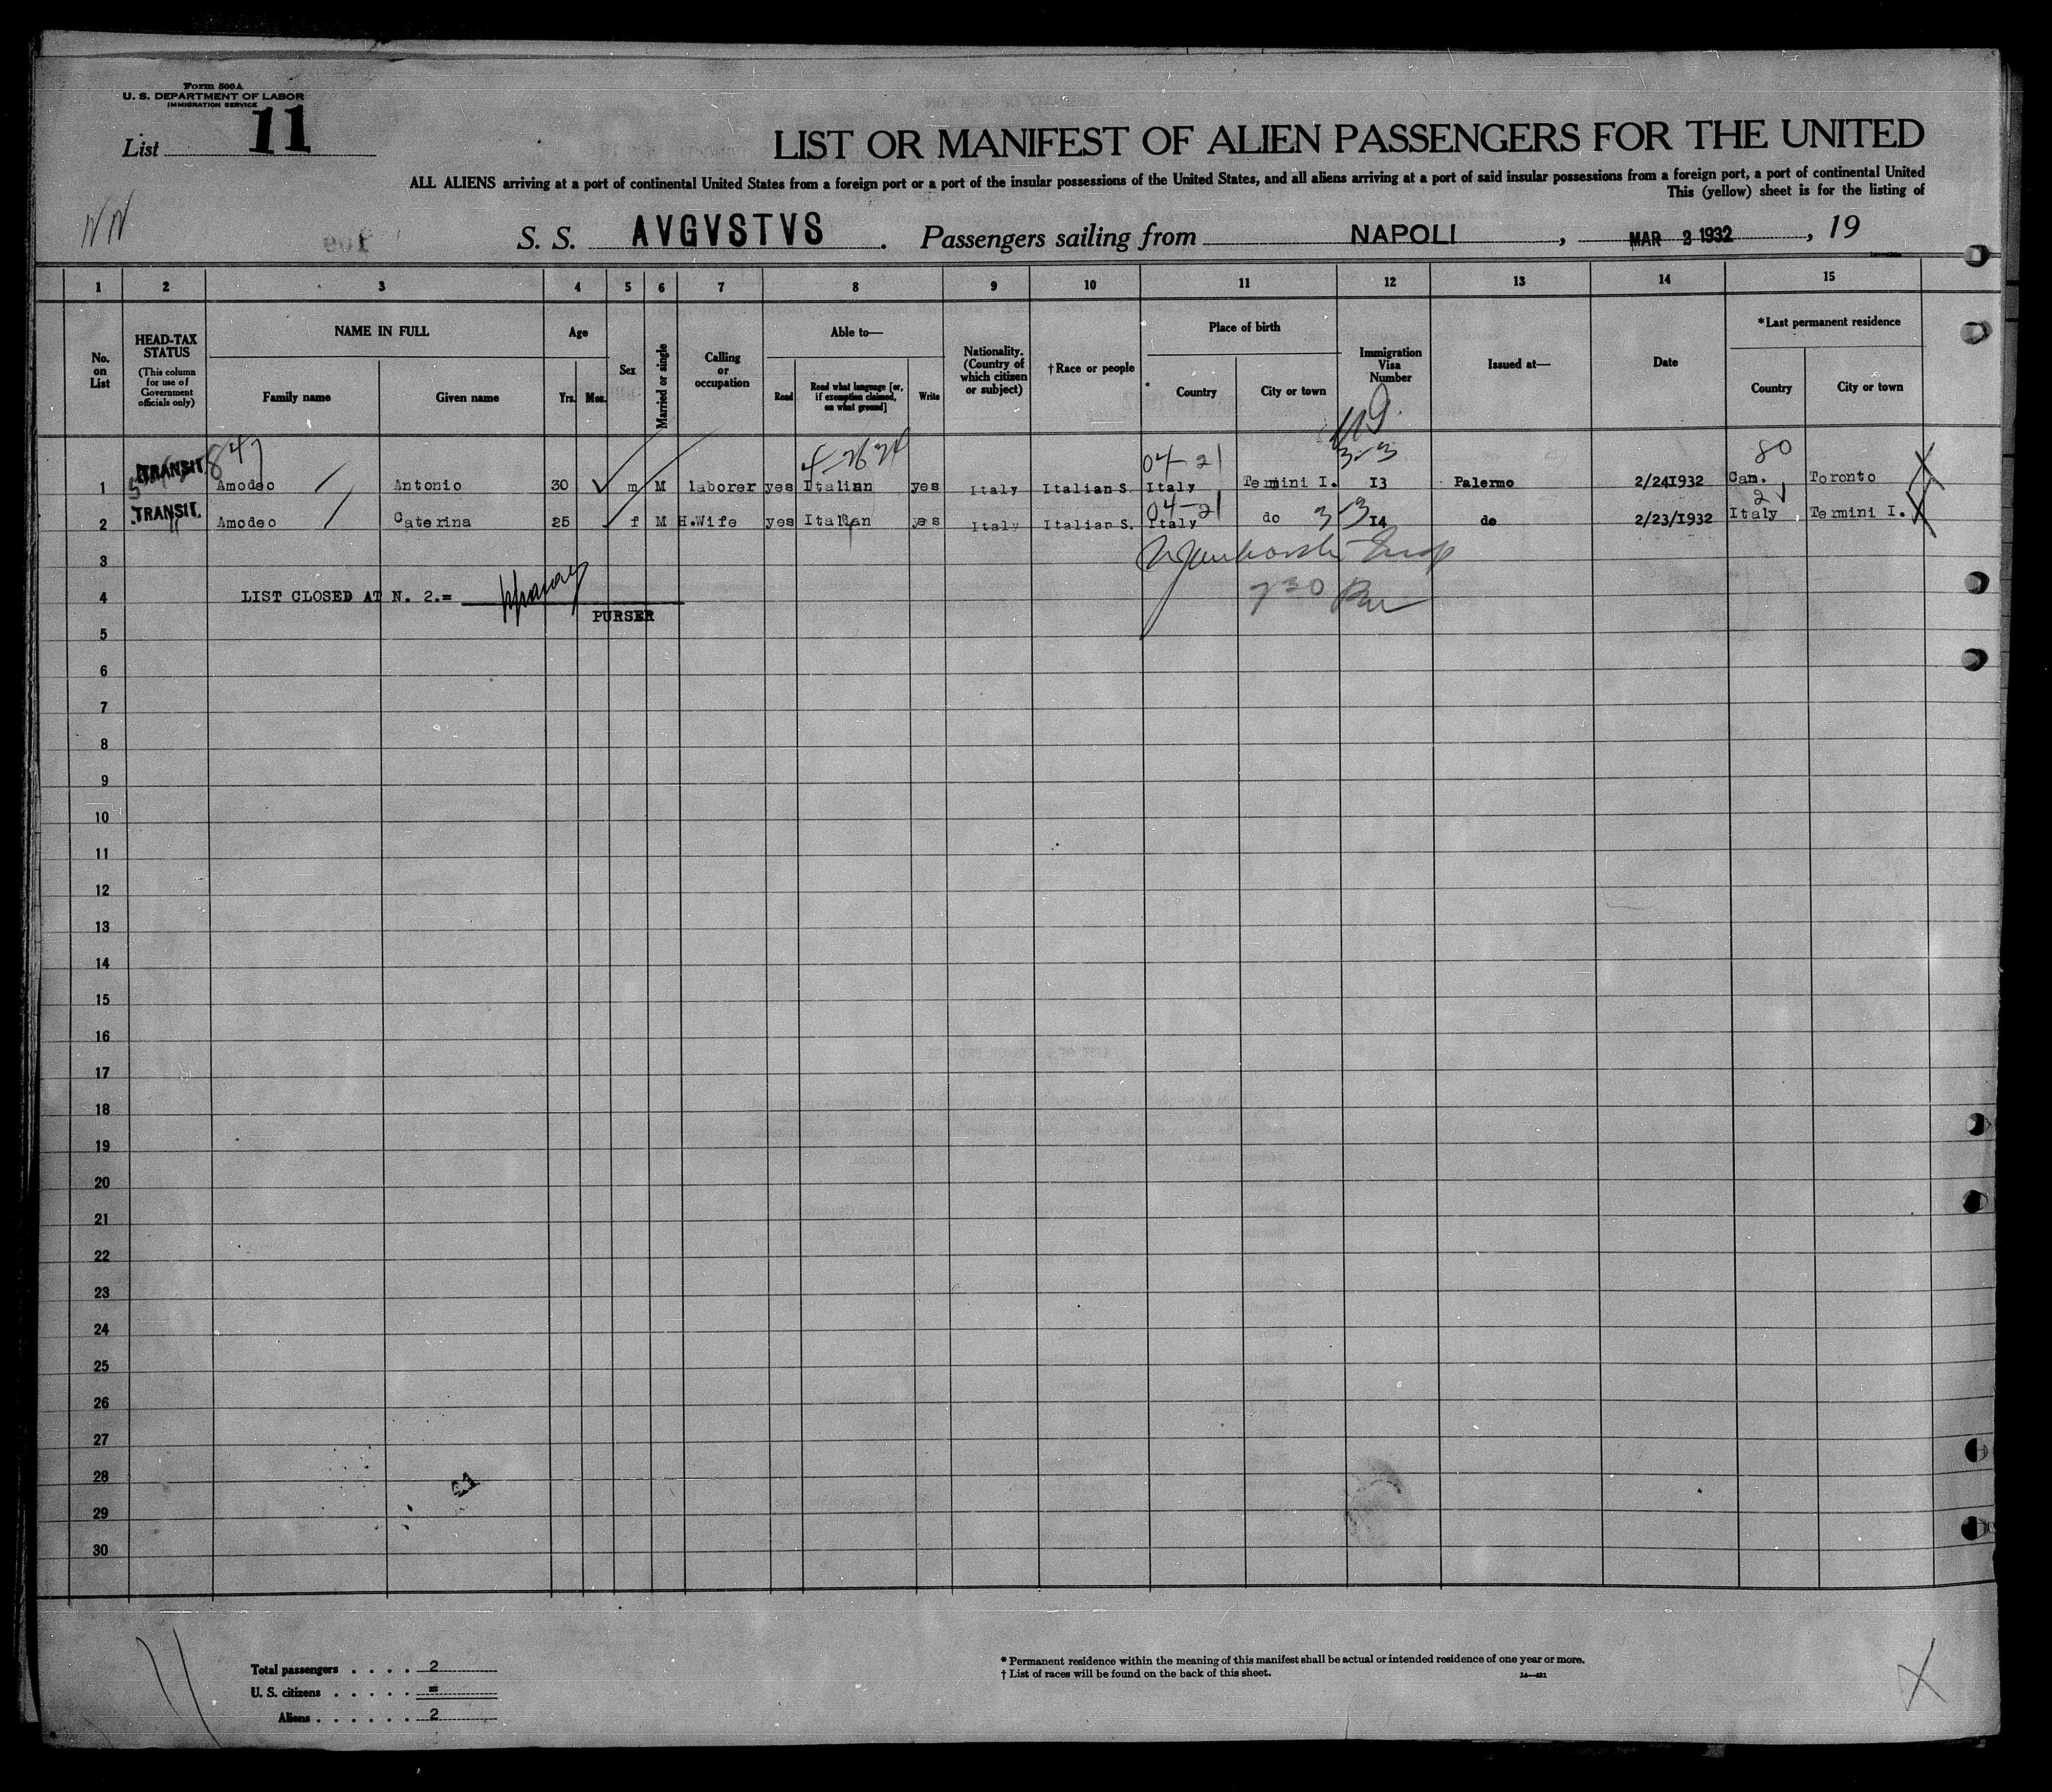 Form 500A
U. S. DEPARTMENT OF LABOR
IMMIGRATION SERVICE
List 11
LIST OR MANIFEST OF ALIEN PASSENGERS FOR THE UNITED
ALL ALIENS arriving at a port of continental United States from a foreign port or a port of the insular possessions of the United States, and all aliens arriving at a port of said insular possessions from a foreign port, a port of continental United
This (yellow) sheet is for the listing of
S. S. AVGVSTVS. Passengers sailing from NAPOLI, MAR 2 1932, 19
1 2 3 4 5 6 7 8 9 10 11 12 13 14 15
No. on List
HEAD-TAX STATUS (This column for use of Government officials only)
NAME IN FULL
Family name Given name
Age
Yrs. Mos.
Sex
Married or single
Calling or occupation
Able to—
Read Read what language [or, if exemption claimed, on what ground] Write
Nationality. (Country of which citizen or subject)
†Race or people
Place of birth
Country City or town
Immigration Visa Number
Issued at—
Date
*Last permanent residence
Country City or town
847 04-21 3-3 80
1 TRANSIT Amodeo Antonio 30 m M laborer yes Italian yes Italy Italian S. Italy Termini I. I3 Palermo 2/24I932 Can. Toronto
04-21 3-3 21
2 TRANSIT. Amodeo Caterina 25 f M H.Wife yes Italian yes Italy Italian S. Italy do I4 do 2/23/I932 Italy Termini I.
3
4 LIST CLOSED AT N. 2.= 730
PURSER
5
6
7
8
9
10
11
12
13
14
15
16
17
18
19
20
21
22
23
24
25
26
27
28
29
30
Total passengers . . . . 2
U. S. citizens . . . . . =
Aliens . . . . . . 2
* Permanent residence within the meaning of this manifest shall be actual or intended residence of one year or more.
† List of races will be found on the back of this sheet.